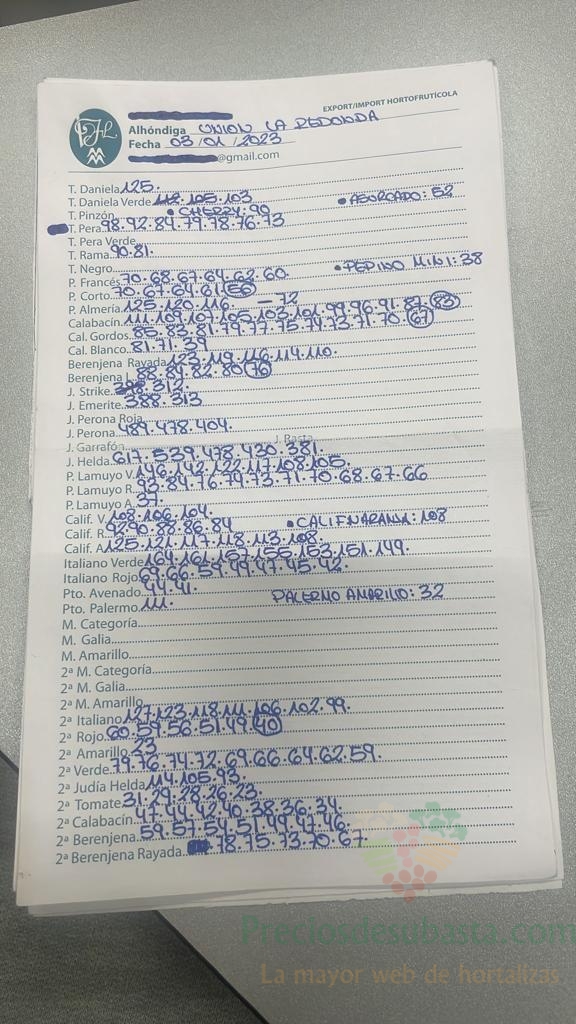 EXPORT/IMPORT HORTOFRUTÍCOLA
Alhóndiga UNION LA REDONDA
Fecha 03/01/2023
@gmail.com
T. Daniela 125.
T. Daniela Verde 112.105.103
T. Pinzón • CHERRY: 90 • ASURCADO: 52
T. Pera 98.92.84.79.78.76.73
T. Pera Verde
T. Rama 90.81.
T. Negro
P. Francés 70.68.67.64.62.60 • PEPINO MINI: 38
P. Corto 70.67.64.61.56
P. Almería 125.120.116 — 72
Calabacín 111.109.107.105.103.101.99.96.91.87.83
Cal. Gordos 85.83.81.79.77.75.74.73.71.70.67
Cal. Blanco 81.71.39
Berenjena Rayada 123.119.116.114.110.
Berenjena L. 88.84.82.80.76
J. Strike 312.
J. Emerite 388.313
J. Perona Roja
J. Perona 489.478.404.
J. Garrafón J. Rasta
J. Helda 617.539.478.430.381
P. Lamuyo V. 146.142.122.117.108.105.
P. Lamuyo R. 93.84.76.79.73.71.70.68.67.66
P. Lamuyo A. 37.
Calif. V. 108.106.104.
Calif. R. 92.90.88.86.84 • CALIF NARANJA: 108
Calif. A. 125.121.117.118.113.108.
Italiano Verde 164.161.157.155.153.151.149.
Italiano Rojo 69.66.59.49.47.45.42.
Pto. Avenado 44.41.
Pto. Palermo 111. PALERMO AMARILLO: 32
M. Categoría
M. Galia
M. Amarillo
2ª M. Categoría
2ª M. Galia
2ª M. Amarillo
2ª Italiano 127.123.118.111.106.102.99.
2ª Rojo 60.59.56.51.49.40
2ª Amarillo 23
2ª Verde 79.76.74.72.69.66.64.62.59.
2ª Judía Helda 114.105.93.
2ª Tomate 31.29.28.26.23.
2ª Calabacín 47.44.42.40.38.36.34.
2ª Berenjena 59.57.54.51.49.47.46.
2ª Berenjena Rayada 78.75.73.70.67.
Preciosdesubasta.com
La mayor web de hortalizas